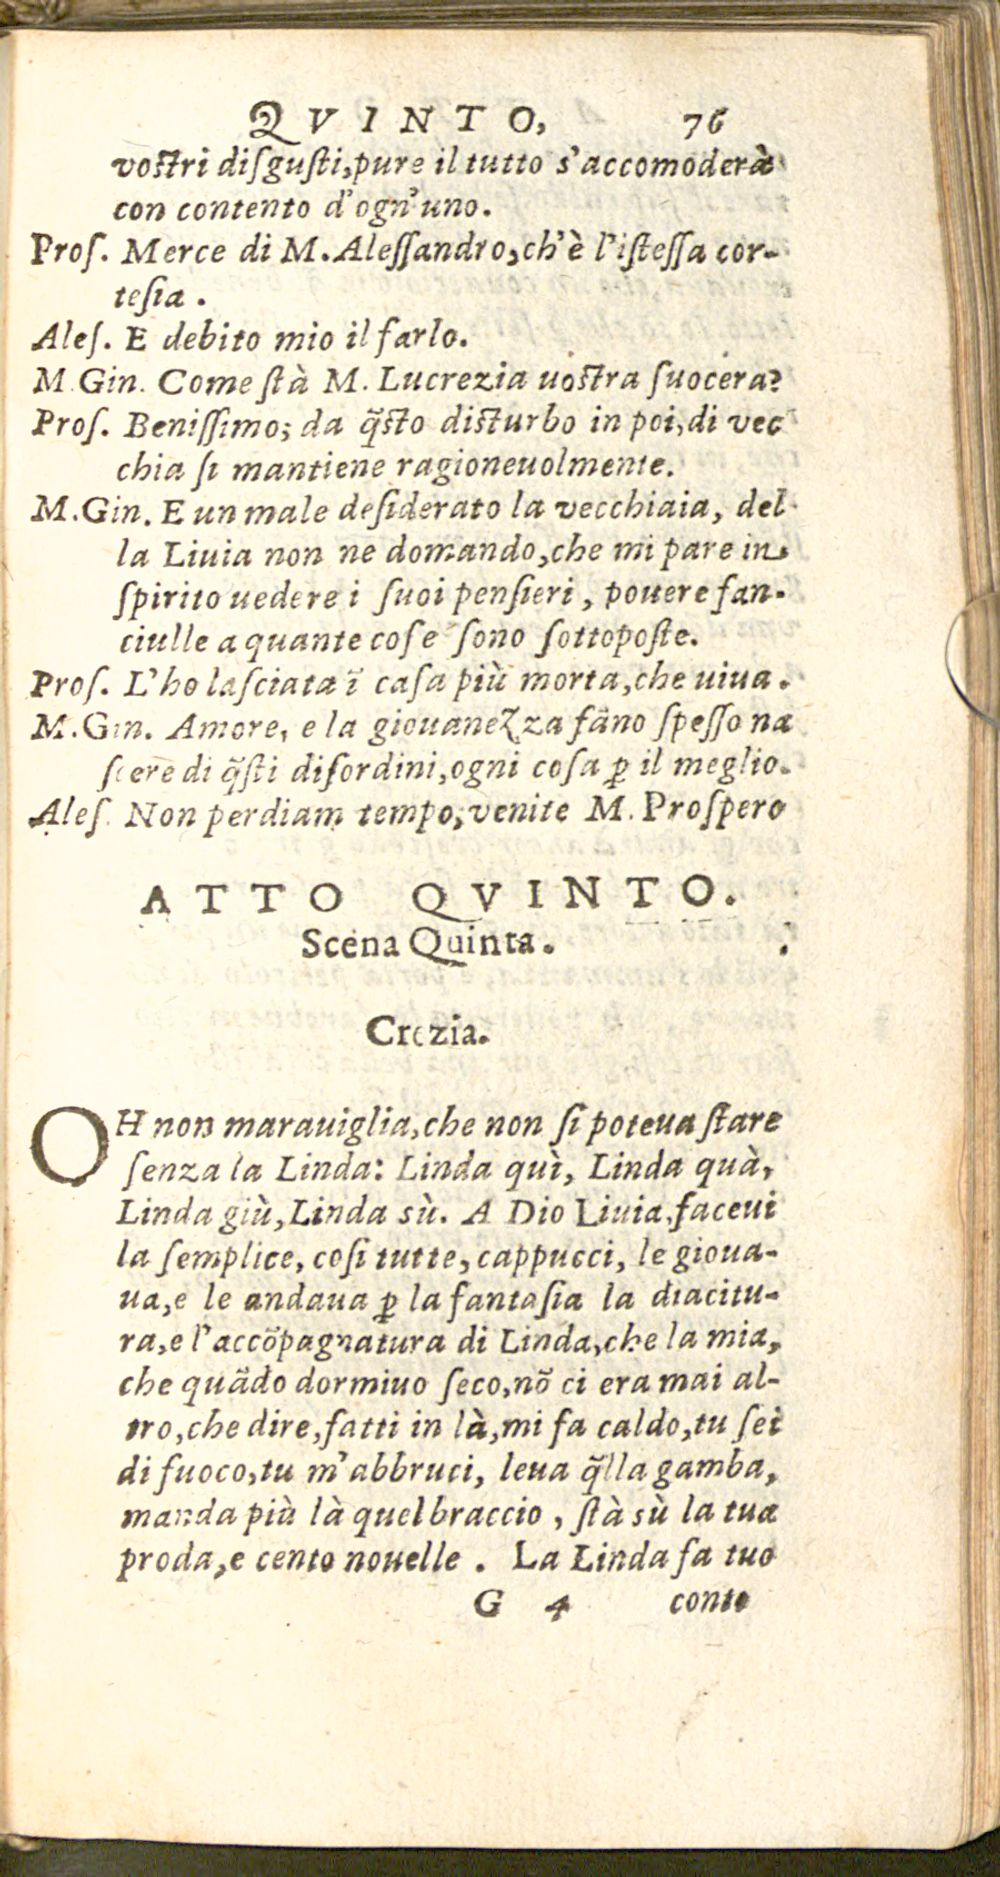 QVINTO, 76
vostri disgusti, pure il tutto s'accomoderà
con contento d'ogn'uno.
Pros. Merce di M. Alessandro, ch'è l'istessa cor-
tesia.
Ales. E debito mio il farlo.
M Gin. Come stà M. Lucrezia uostra suocera?
Pros. Benissimo; da q̃sto disturbo in poi, di vec
chia si mantiene ragioneuolmente.
M. Gin. E un male desiderato la vecchiaia, del-
la Liuia non ne domando, che mi pare in
spirito uedere i suoi pensieri, pouere fan-
ciulle a quante cose sono sottoposte.
Pros. L'ho lasciata ĩ casa più morta, che uiua.
M. Gin. Amore, e la giouanezza fãno spesso na
scere di q̃sti disordini, ogni cosa ꝑ il meglio.
Ales. Non perdiam tempo, venite M. Prospero
ATTO QVINTO.
Scena Quinta.
Crezia.
OH non marauiglia, che non si poteua stare
senza la Linda: Linda quì, Linda quà,
Linda giù, Linda sù. A Dio Liuia, faceui
la semplice, cosi tutte, cappucci, le gioua-
ua, e le andaua ꝑ la fantasia la diacitu-
ra, e l'accõpagnatura di Linda, che la mia,
che quãdo dormiuo seco, nõ ci era mai al-
tro, che dire, fatti in là, mi fa caldo, tu sei
di fuoco, tu m'abbruci, leua q̃lla gamba,
manda più là quel braccio, stà sù la tua
proda, e cento nouelle. La Linda fa tuo
G 4 conto